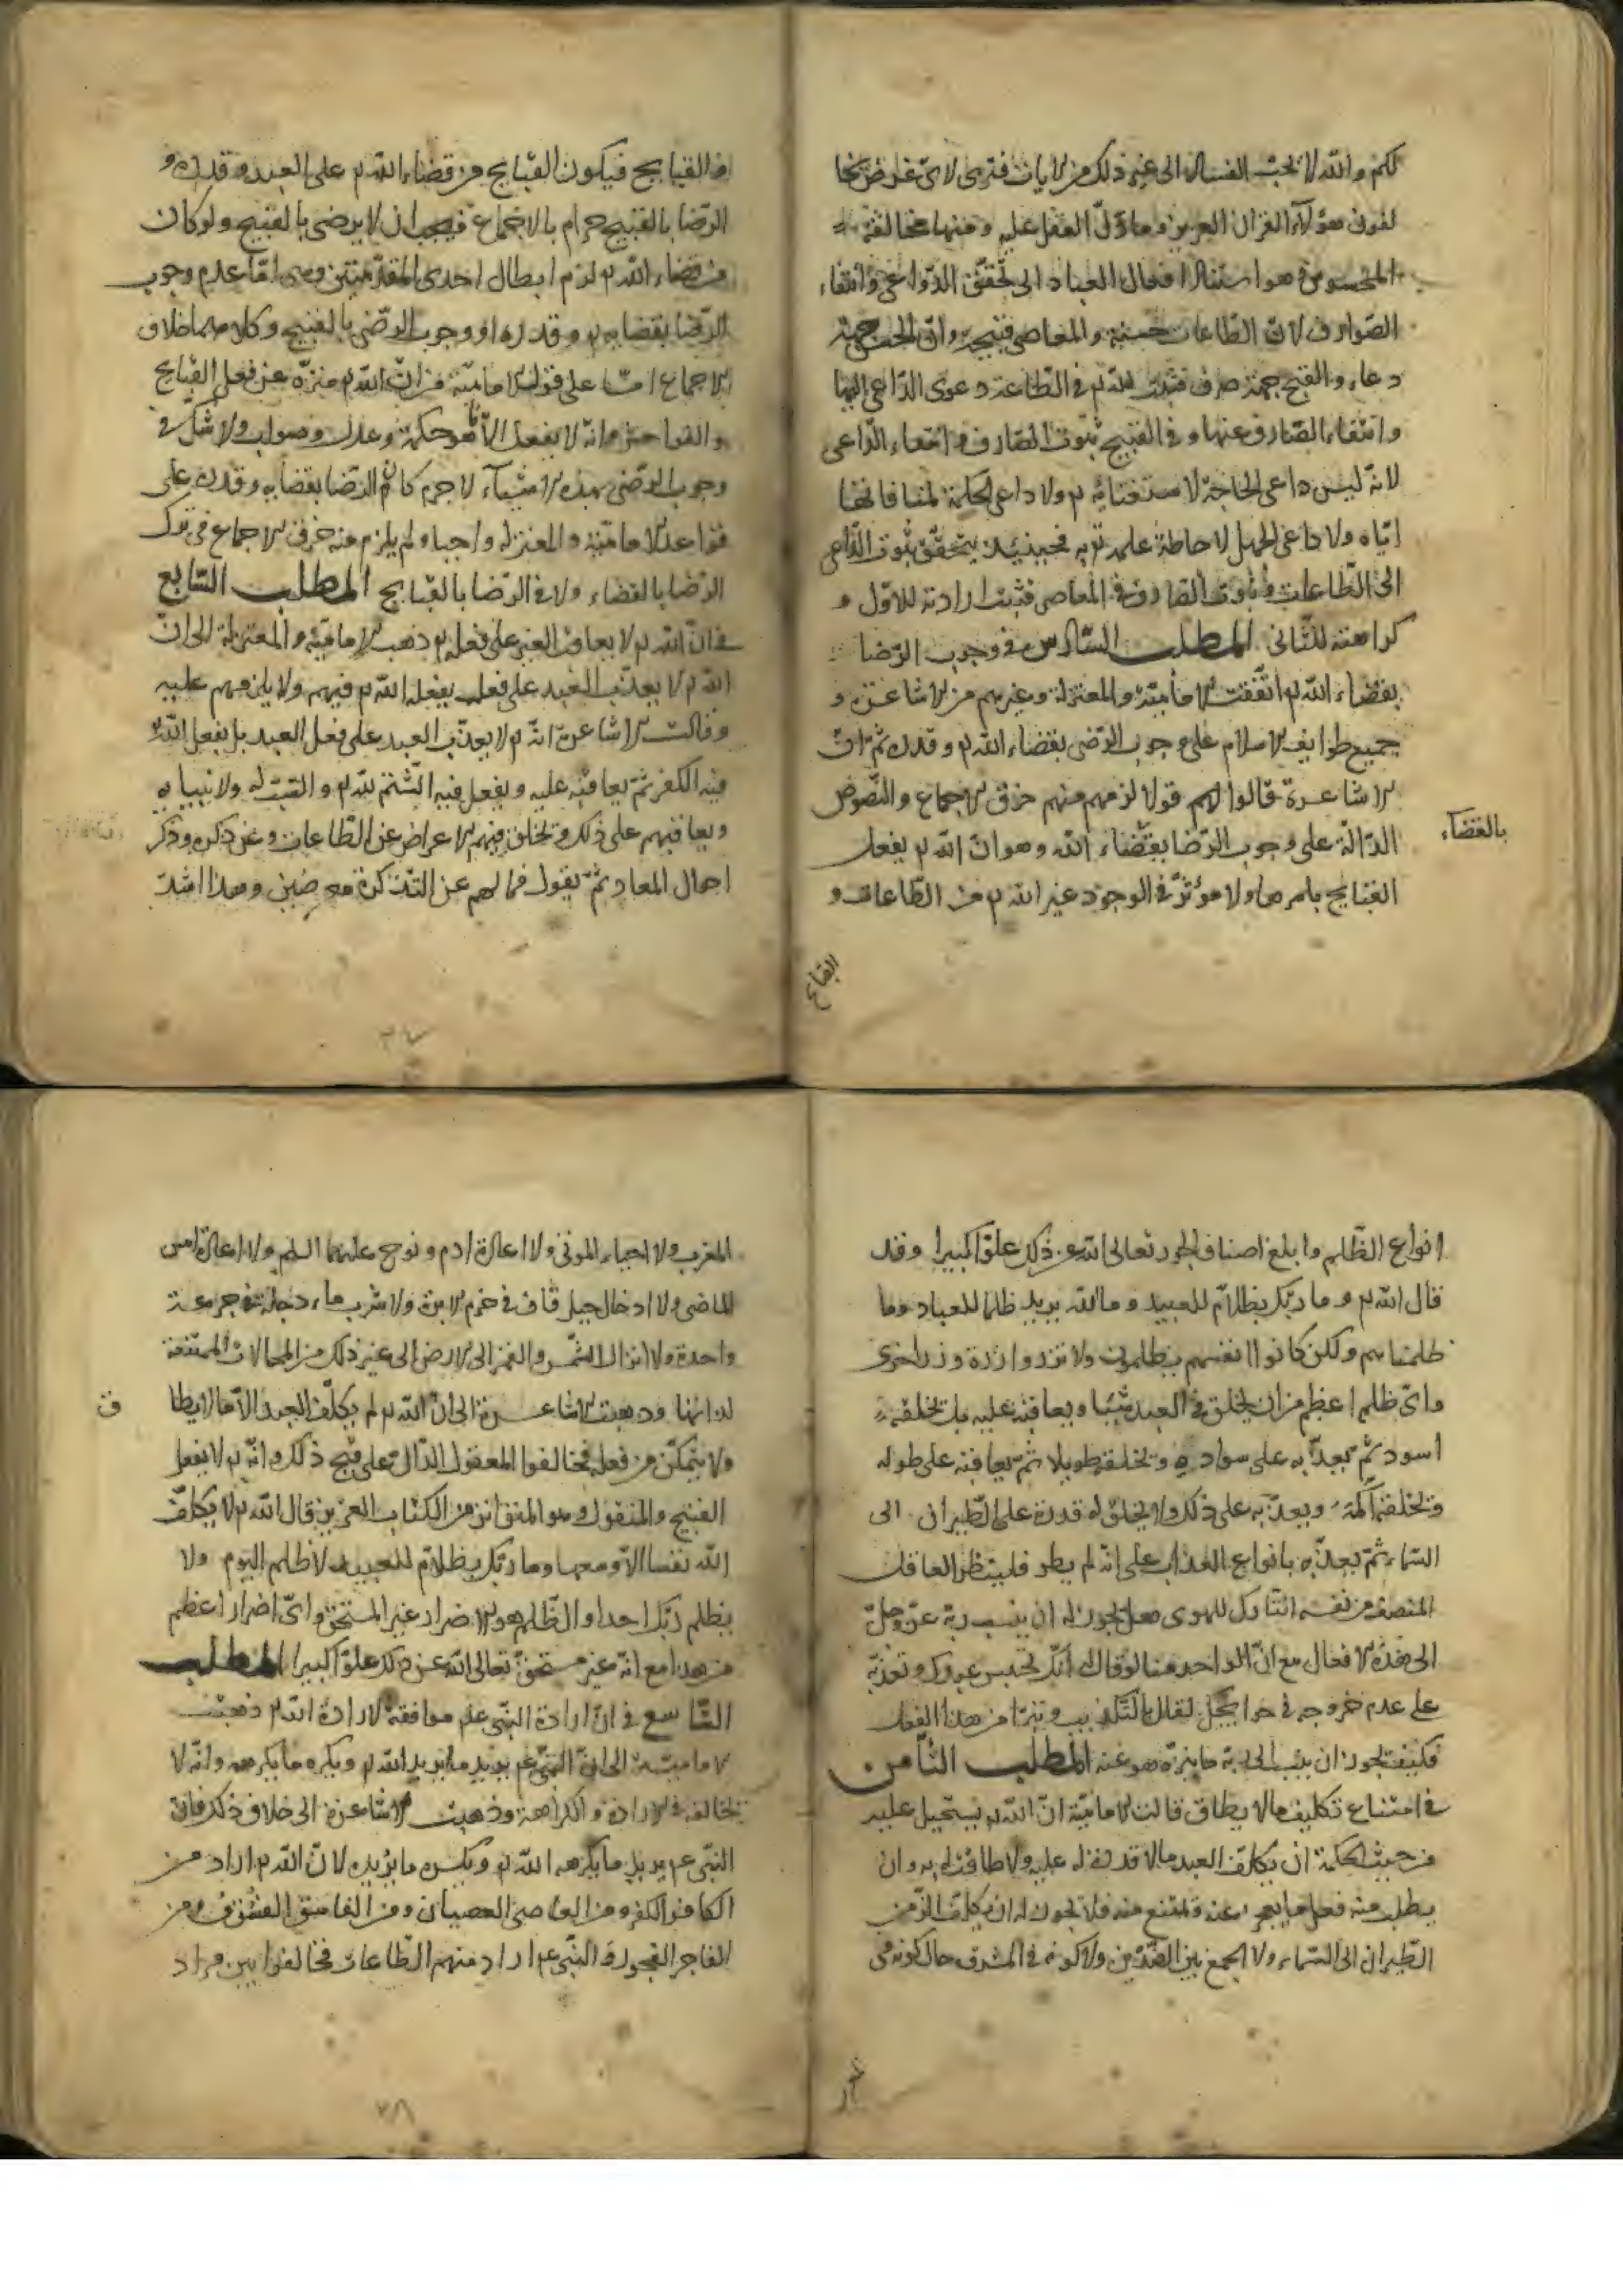 لكم والله لا يحب الفساد الى غير ذلك من الايات فترى لاى غرض يخا
لفون هؤلاء القران العزيز وما دل العقل عليه ومنها مخالفة
المحسوس وهو استناد افعال العباد الى تحقق الدواعى وانتفاء
الصوارف لان الطاعات حسنة والمعاصى قبيحة وان الحسن جهة
دعاء والقبح جهة صرف فيثبت لله تع فى الطاعة دعوى الداعى اليها
وانتفاء الصارف عنها وفى القبيح ثبوت الصارف وانتفاء الداعى
لانه ليس داعى الحاجة لاستغنائه تع ولا داعى الحكمة لمنافاتها
اياه ولا داعى الجهل لاحاطة علمه تع به فحينئذ يتحقق ثبوت الداعى
الى الطاعات وثبوت الصارف فى المعاصى فثبت ارادته للاول و
كراهته للثانى المطلب السادس فى وجوب الرضا
بقضاء الله تع اتفقت الامامية والمعتزلة وغيرهم من الاشاعرة و
جميع طوايف الاسلام على وجوب الرضى بقضاء الله تع وقدره ثم ان
الاشاعرة قالوا قولا لزمهم منه خرق الاجماع والنصوص
الدالة على وجوب الرضا بقضاء الله وهو ان الله تع يفعل
بالقضاء
القبايح باسرها ولا مؤثر فى الوجود غير الله تع من الطاعات و
القبايح
والقبايح فيكون القبايح من قضاء الله تع على العبد وقدره و
الرضا بالقبيح حرام بالاجماع فيجب ان لا يرضى بالقبيح ولو كان
من قضاء الله تع لزم ابطال احدى المقدمتين وهى اما عدم وجوب
الرضا بقضايه تع وقدره او وجوب الرضى بالقبيح وكلاهما خلاف
الاجماع اما على قول الامامية من ان الله تع منزه عن فعل القبايح
والفواحش وانه لا يفعل الا ما هو حكمة وعدل وصواب ولا شك فى
وجوب الرضى بهذه الاشياء لا جرم كان الرضا بقضايه وقدره على
قواعد الامامية والمعتزلة واجبا ولم يلزم منه خرق الاجماع فى ترك
الرضا بالقضاء ولا فى الرضا بالقبايح المطلب السابع
فى ان الله تع لا يعاقب الغير على فعله تع ذهبت الامامية والمعتزلة الى ان
الله تع لا يعذب العبد على فعل يفعله الله تع فيهم ولا يلومهم عليه
وقالت الاشاعرة ان الله تع لا يعذب العبد على فعل العبد بل يفعل الله
فيه الكفر ثم يعاقبه عليه ويفعل فيه الشتم لله تع والسب له ولانبيايه
ويعاقبهم على ذلك ويخلق فيهم الاعراض عن الطاعات وعن ذكره وذكر
احوال المعاد ثم يقول فما لهم عن التذكرة معرضين وهذا اشد
انواع الظلم وابلغ اصناف الجور تعالى الله عن ذلك علوا كبيرا وقد
قال الله تع وما ربك بظلام للعبيد وما الله يريد ظلما للعباد وما
ظلمناهم ولكن كانوا انفسهم يظلمون ولا تزر وازرة وزر اخرى
واى ظلم اعظم من ان يخلق فى العبد شيئا ويعاقبه عليه بل يخلقه
اسود ثم يعذبه على سواده ويخلقه طويلا ثم يعاقبه على طوله
ويخلقه اكمه ويعذبه على ذلك ولا يخلق له قدرة على الطيران الى
السماء ثم يعذبه بانواع العذاب على انه لم يطر فلينظر العاقل
المنصف من نفسه التارك للهوى هل يجوز له ان ينسب ربه عز وجل
الى هذه الافعال مع ان الواحد منا لو قال انك تحبس عبدك وتعذبه
على عدم خروجه فى حوائجك لقابل بالتكذيب وتبرأ من هذا الفعل
فكيف يجوز ان ينسب الى ربه ما يتنزه هو عنه المطلب الثامن
فى امتناع تكليف ما لا يطاق قالت الامامية ان الله تع يستحيل عليه
من حيث الحكمة ان يكلف العبد ما لا قدرة له عليه ولا طاقة له به وان
يطلب منه فعل ما يعجز عنه ويمتنع منه فلا يجوز له ان يكلف الزمن
الطيران الى السماء ولا الجمع بين الضدين ولا كونه فى المشرق حال كونه فى
المغرب ولا احياء الموتى ولا اعادة ادم ونوح عليهما السلم ولا اعادة امس
الماضى ولا ادخال جبل قاف فى خرم الابرة ولا شرب ماء دجلة فى جرعة
واحدة ولا انزال الشمس والقمر الى الارض الى غير ذلك من المحالات الممتنعة
لذاتها وذهبت الاشاعرة الى ان الله تع لم يكلف العبد الا ما لا يطا
ق
ولا يتمكن من فعله فخالفوا المعقول الدال على قبح ذلك وانه تع لا يفعل
القبيح والمنقول وهو المتواتر من الكتاب العزيز قال الله تع لا يكلف
الله نفسا الا وسعها وما ربك بظلام للعبيد لا ظلم اليوم ولا
يظلم ربك احدا والظلم هو الاضرار غير المستحق واى اضرار اعظم
من هذا مع انه غير مستحق تعالى الله عن ذلك علوا كبيرا المطلب
التاسع فى ان ارادة النبى عم موافقة لارادة الله تع ذهبت
الامامية الى ان النبى عم يريد ما يريد الله تع ويكره ما يكرهه وانه لا
يخالفه فى الارادة والكراهة وذهبت الاشاعرة الى خلاف ذلك فان
النبى عم يريد ما يكرهه الله تع ويكره ما يريده لان الله تع اراد من
الكافر الكفر ومن العاصى العصيان ومن الفاسق الفسوق ومن
الفاجر الفجور والنبى عم اراد منهم الطاعات فخالفوا بين مراد